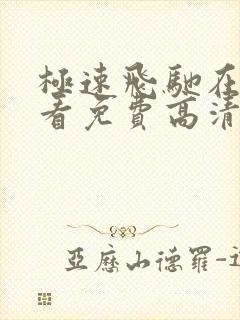 極速飛馳在
看免費高清
亞歷山德羅-